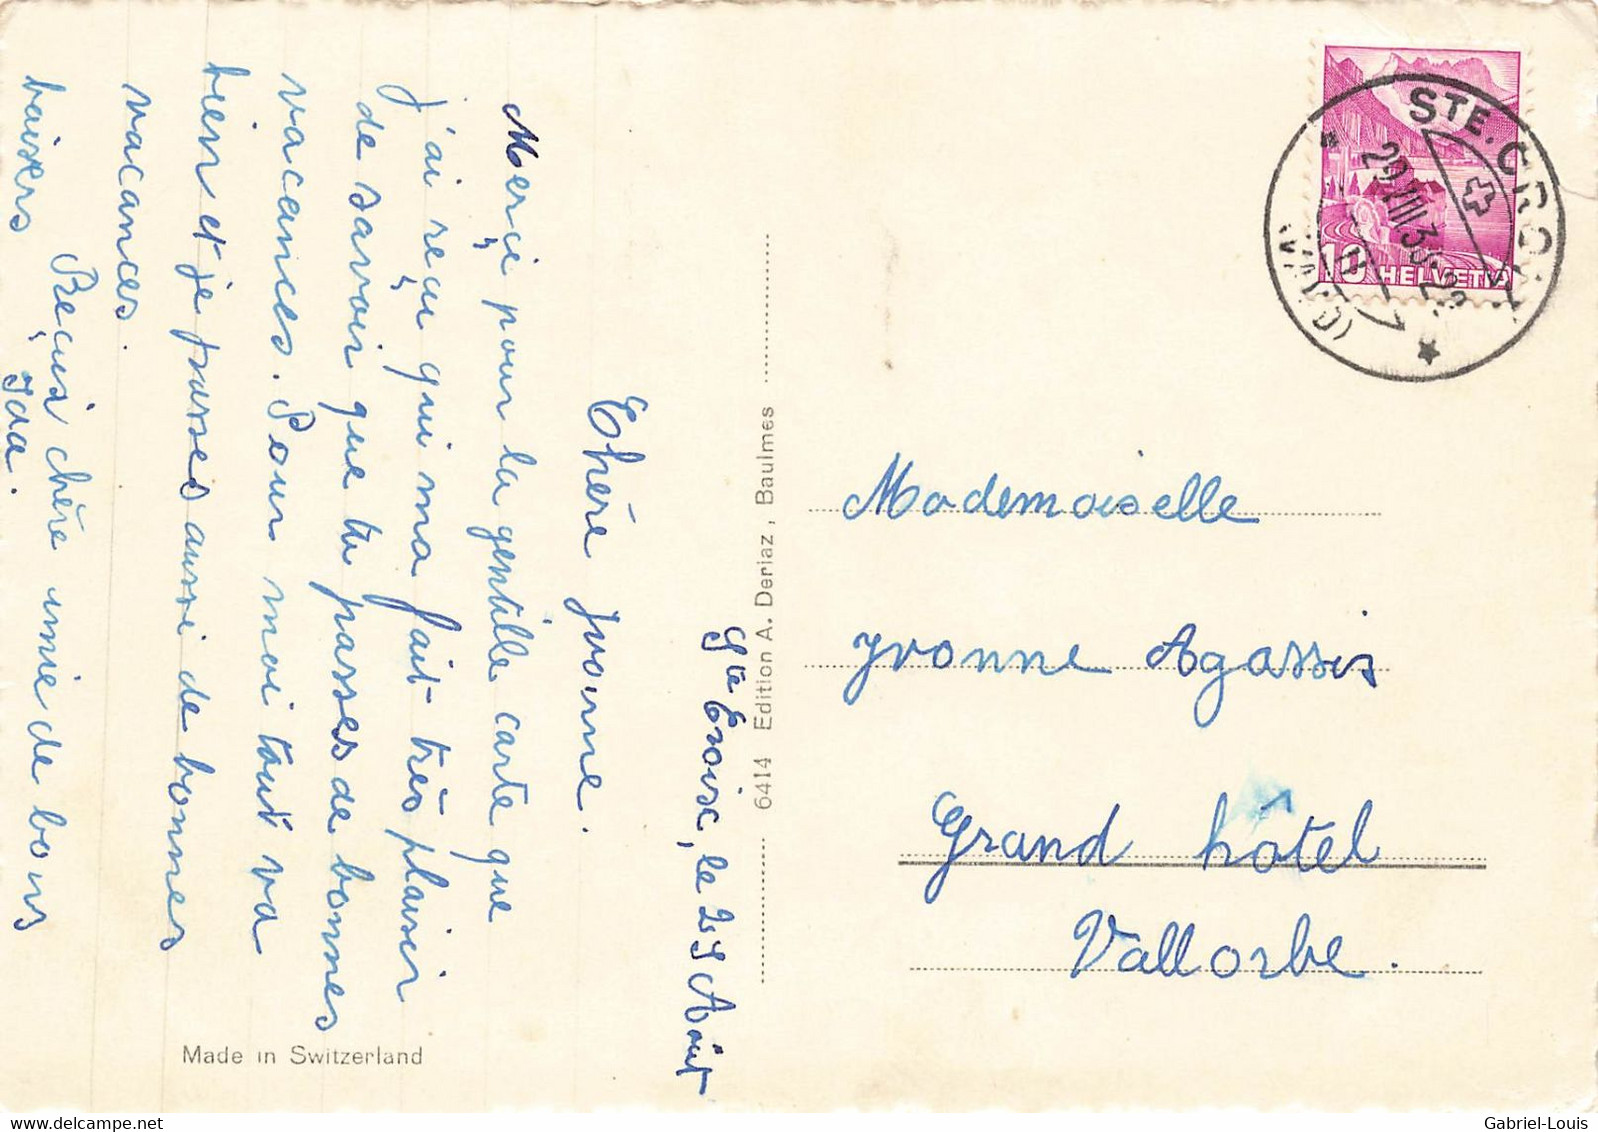 Ste Croix, le 29 Août
Chère Yvonne.
Merçi pour la gentille carte que
j'ai reçu qui ma fait très plaisir
de savoir que tu passes de bonnes
vacances. Pour moi tout va
bien et je passes aussi de bonnes
vacances.
Reçois chère amie de bons
baisers
Ida.
6414 Edition A. Deriaz, Baulmes
Made in Switzerland
STE. CROIX
(VAUD)
29 VIII 3
10 HELVETIA
Mademoiselle
Yvonne Agassis
Grand hôtel
Vallorbe.
Gabriel-Louis